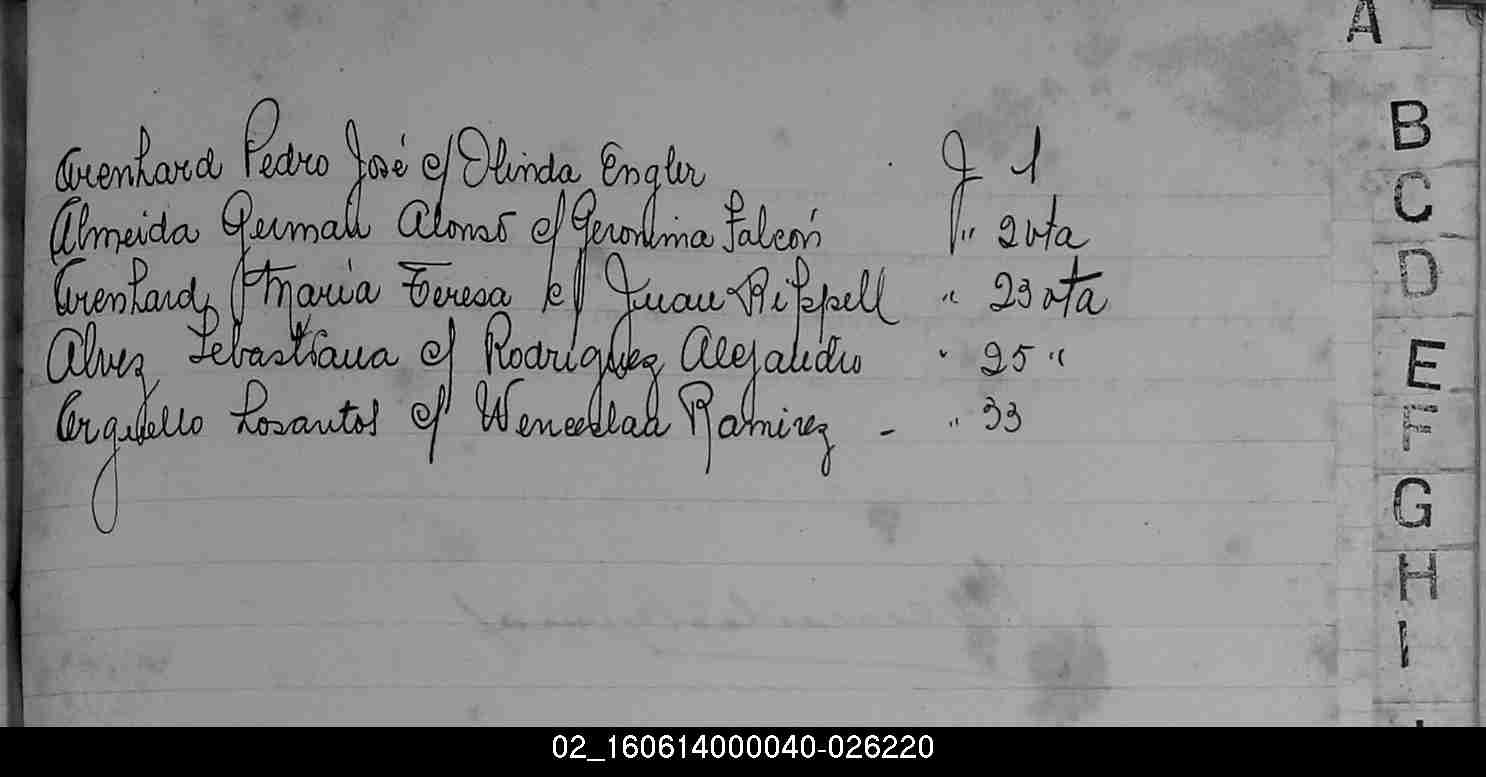 A
Arenhard Pedro José c/ Olinda Engler F 1
Almeida German Alonso c/ Geronima Falcón " " 2 vta
Arenhard, Maria Teresa c/ Juan Rippell " 23 vta
Alvez Sebastiana c/ Rodriguez Alejandro " 25 "
Arguello Losantos c/ Wenceslaa Ramirez - " 33
B
C
D
E
F
G
H
I
02_160614000040-026220